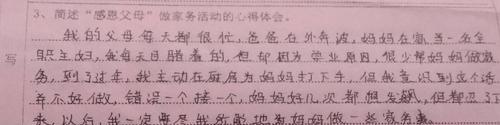 3、简述“感恩父母”做家务活动的心得体会。
我的父母每天都很忙,爸爸在外奔波,妈妈在家当一名全
写 职主妇,我每天目睹着的,但却因为学业原因,很少帮妈妈做家
务,到了过年,我主动在厨房为妈妈打下手,但我意识到这个活
并不好做,错误一个接一个,妈妈好几次都想发飙,但都忍了
来,以后,我一定要尽我所能地为妈妈做一些家务事